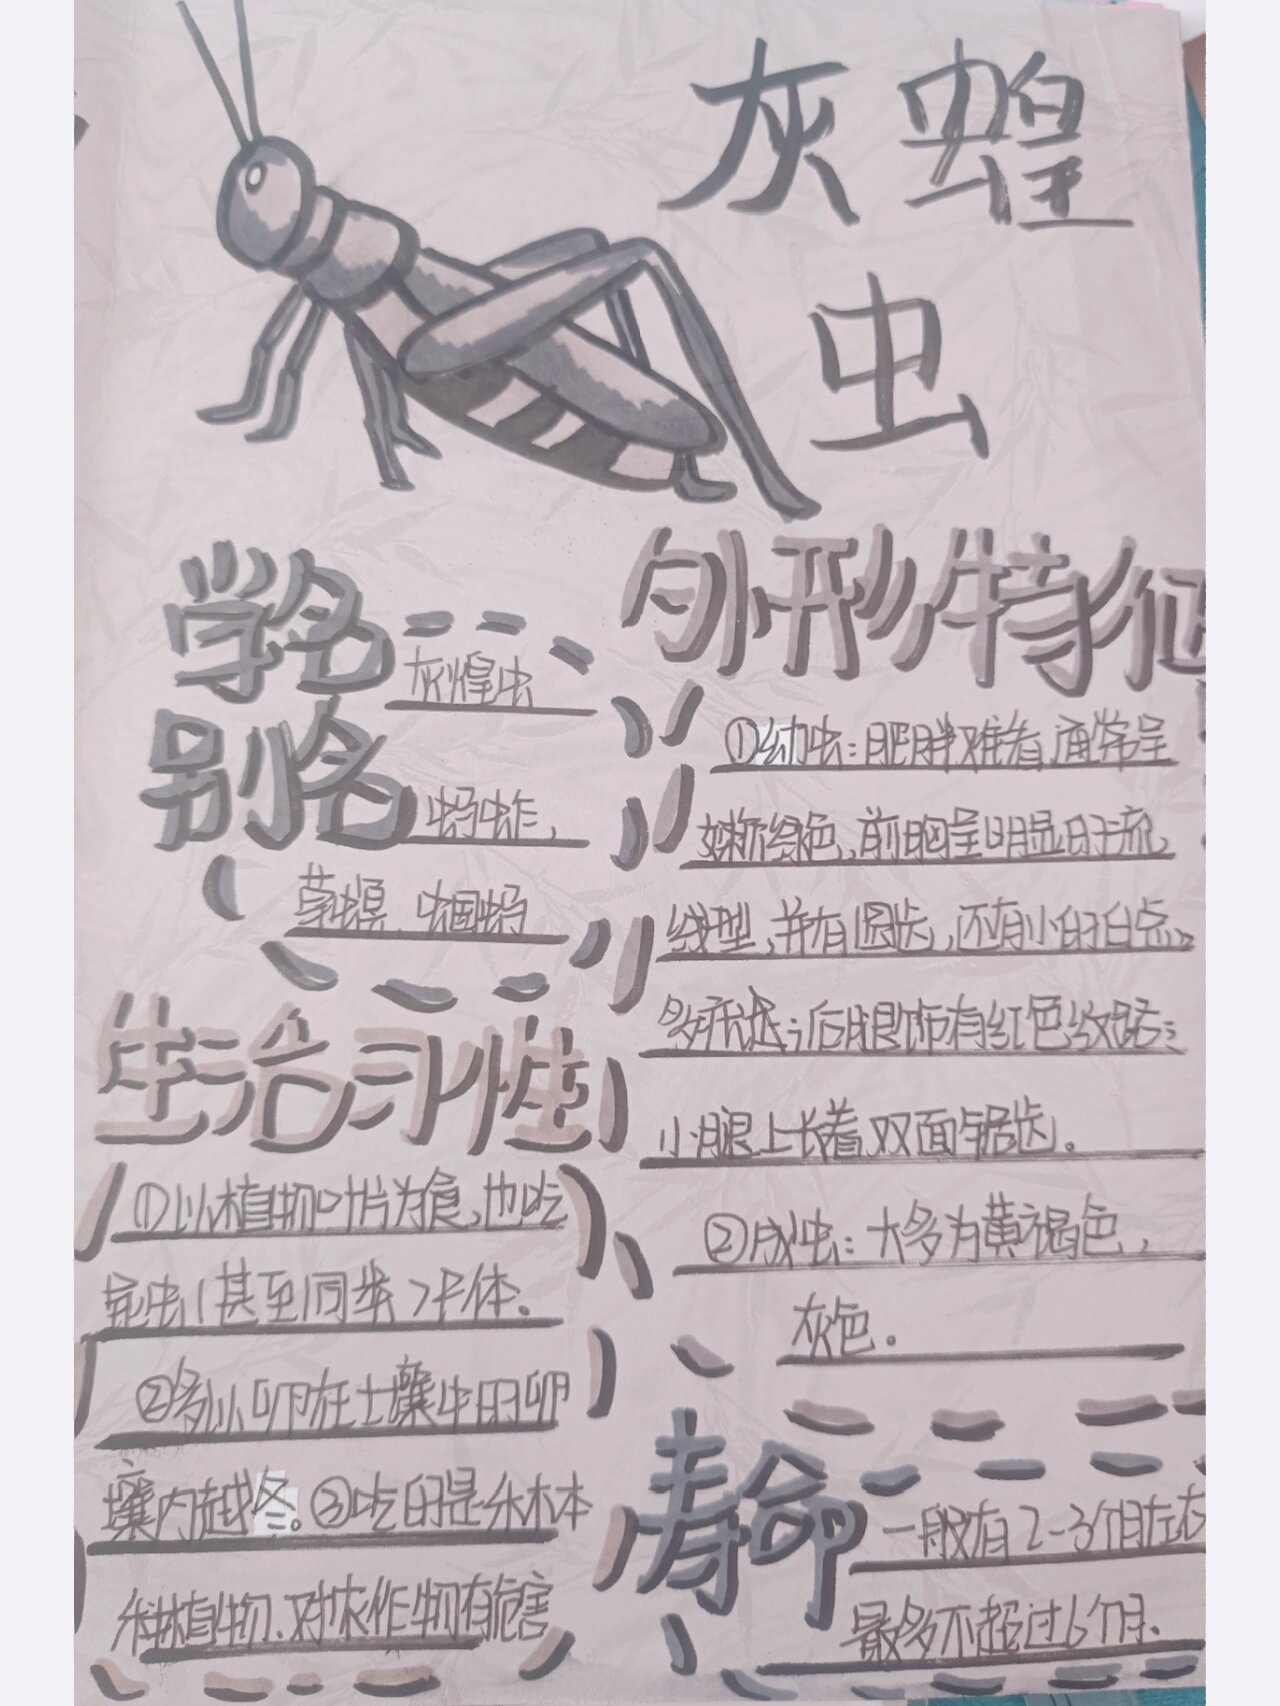 灰蝗
虫
学名
灰煌虫
别名
蚂蚱,
草螟、蝈蚂
生活习性
①以植物叶片为食,也吃
昆虫(甚至同类)尸体.
②多以卵在土壤中的卵
囊内越冬。③吃的是禾本
科植物、对农作物有危害
外形特征
①幼虫:肥胖难看,通常呈
嫩绿色,前胸呈明显的流
线型,并有圆齿,还有小的白点
后腿饰有红色纹路;
小腿上长着双面锯齿。
②成虫:大多为黄褐色,
灰色。
寿命
一般有2-3个月左右
最多不超过6个月.